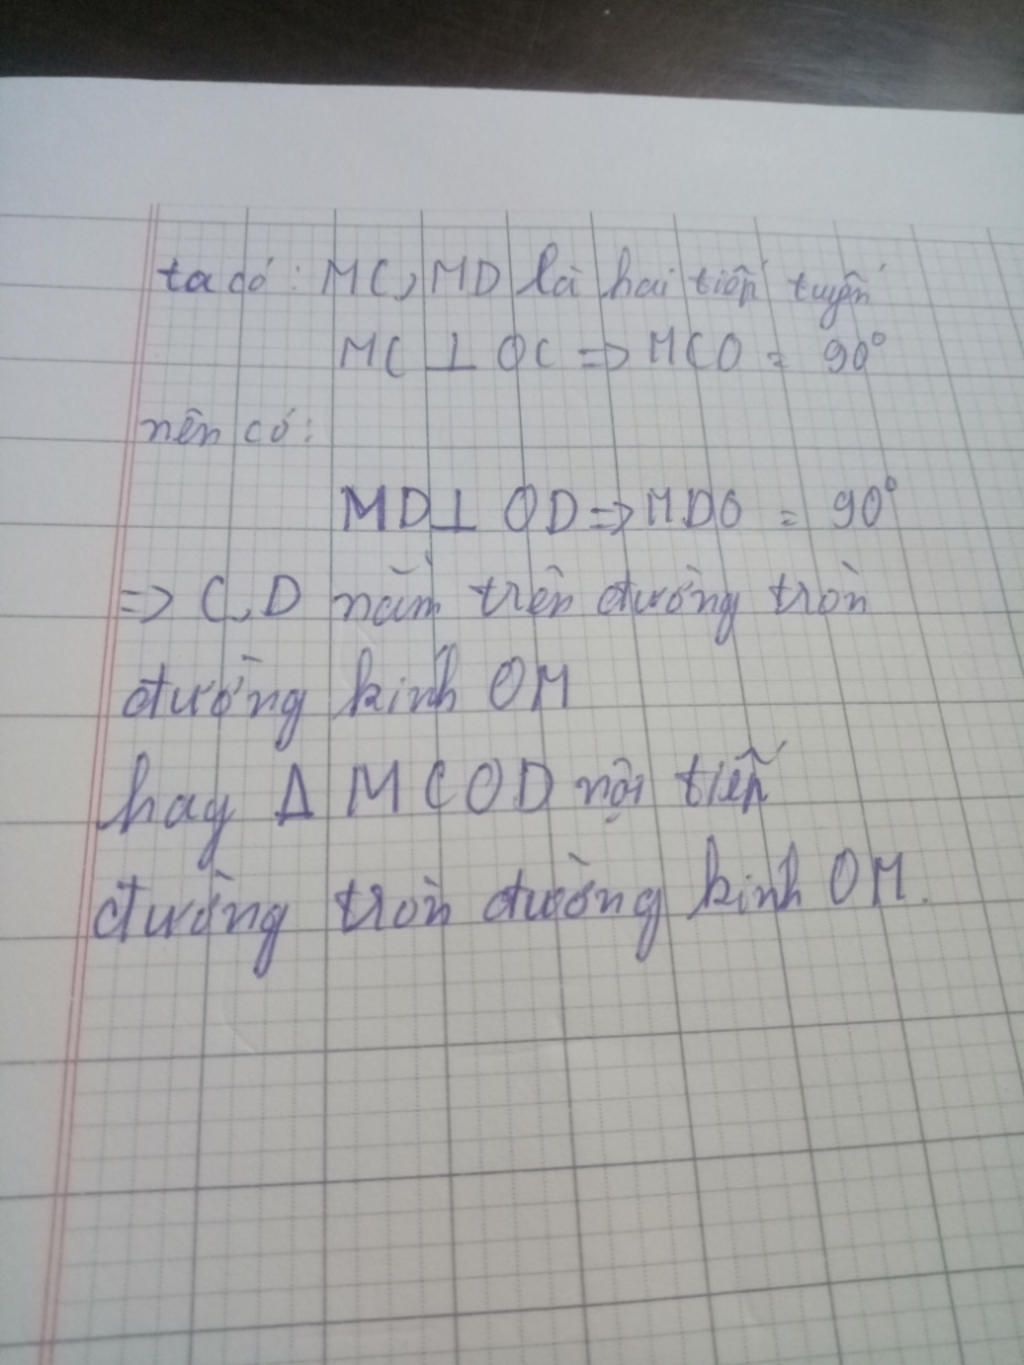 ta có: MC, MD là hai tiếp tuyến
MC ⊥ OC => MCO = 90°
nên có:
MD ⊥ OD => MDO = 90°
=> C, D nằm trên đường tròn
đường kính OM
hay Δ MCOD nội tiếp
đường tròn đường kính OM.